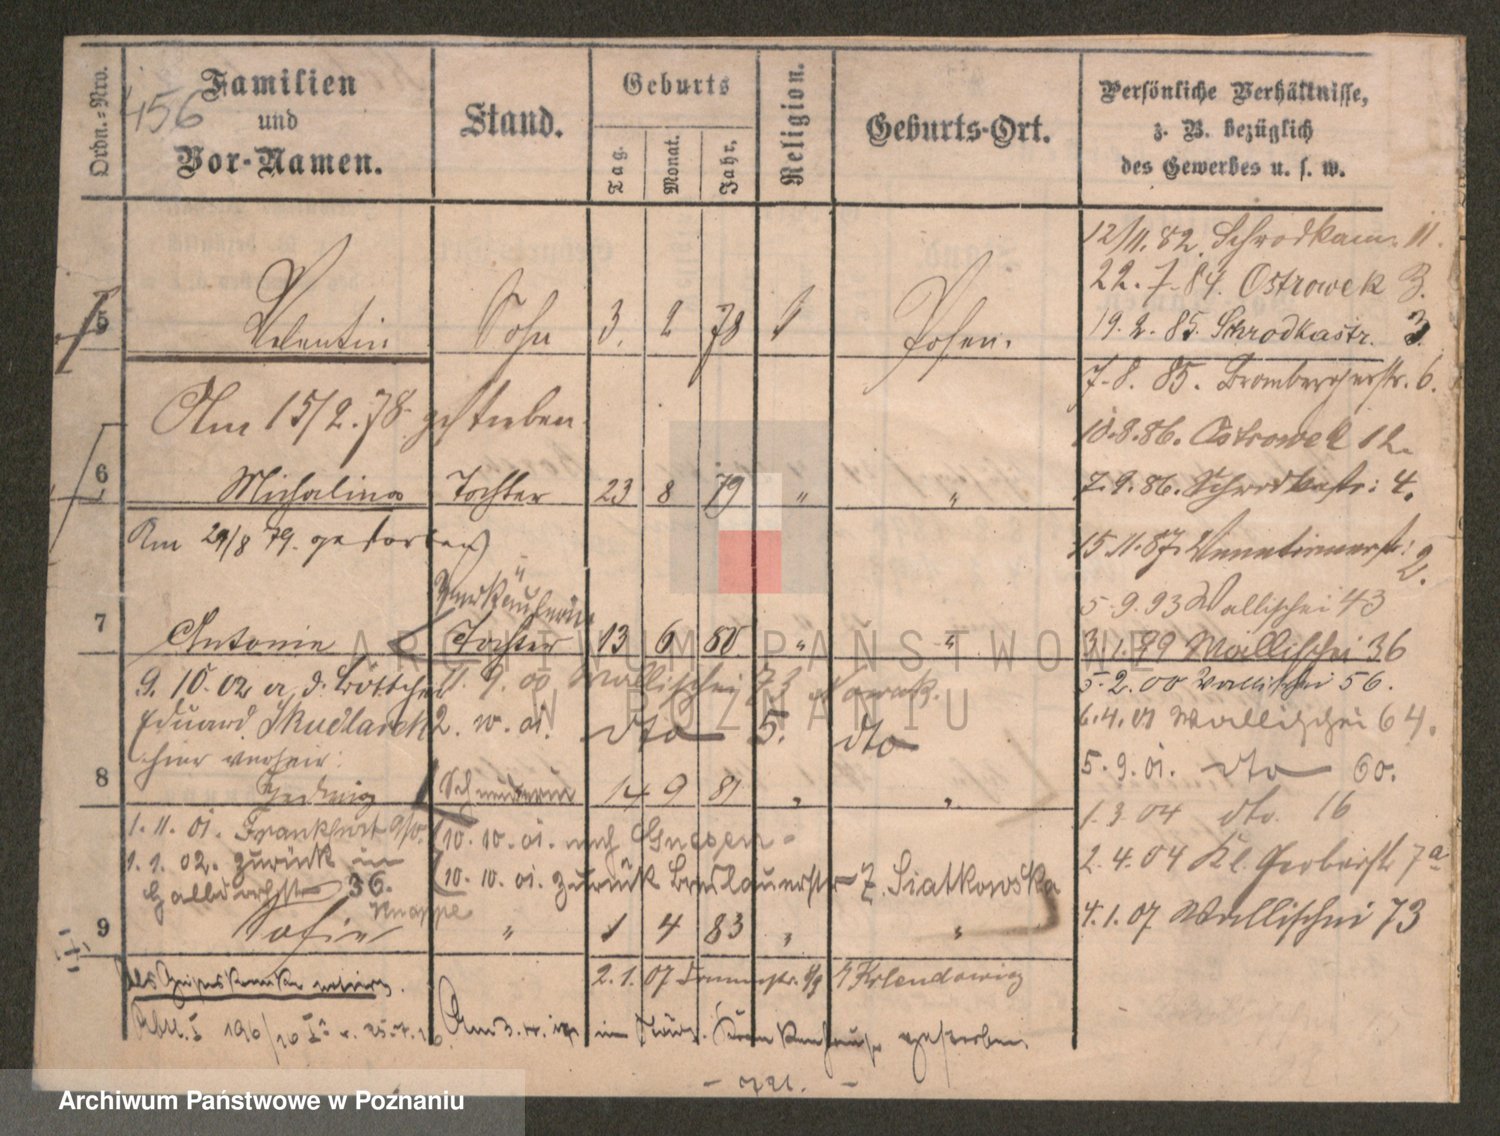 Ordn.-Nro.
Familien
und
Vor-Namen.
Stand.
Geburts
Tag.
Monat.
Jahr.
Religion.
Geburts-Ort.
Persönliche Verhältnisse,
z. B. bezüglich
des Gewerbes u. s. w.
456
12/11. 82. Schrodkam. 11.
22. 7. 84. Ostrowek 3.
5 Valentin Sohn 3. 2 78 Posen.
19. 2. 85. Schrodkastr. 3.
7. 8. 85. Brombergerstr. 6.
Am 15/2. 78. gestorben.
10. 8. 86. Ostrowek 12.
6 Michalina Tochter 23 8 79 " "
7. 9. 86. Schrodkastr: 4.
Am 29/8 79. gestorben
15. 11. 87. Venetianerstr: 2.
Verkäuferin
5. 9. 93 Wallischei 43
7 Antonie Tochter 13 6 80 " "
3. 1. 99 Wallischei 36
9. 10. 02 a. d. Böttcher
11. 9. 00 Wallischei 73 Nowak.
5. 2. 00 Wallischei 56.
Eduard Skudlarek
2. 10. 01. dto 5. dto
6. 4. 01 Wallischei 64.
hier verheir.
5. 9. 01. dto 60.
8 Hedwig Schneiderin 14 9 81 " "
1. 3. 04 dto. 16
1. 11. 01. Frankfurt a/O.
10. 10. 01. nach Gnesen
1. 1. 02. zurück in
10. 10. 01. zurück Breslauerstr Z. Siatkowska
2. 4. 04 Kl. Gerberstr 7a
Halbdorfstr 36.
Knappe
9 Sofie " 1 4 83 " "
4. 1. 07 Wallischei 73
2. 1. 07
Am 3. in städt. Krankenhause gestorben.
ARCHIWUM PAŃSTWOWE
W POZNANIU
Archiwum Państwowe w Poznaniu